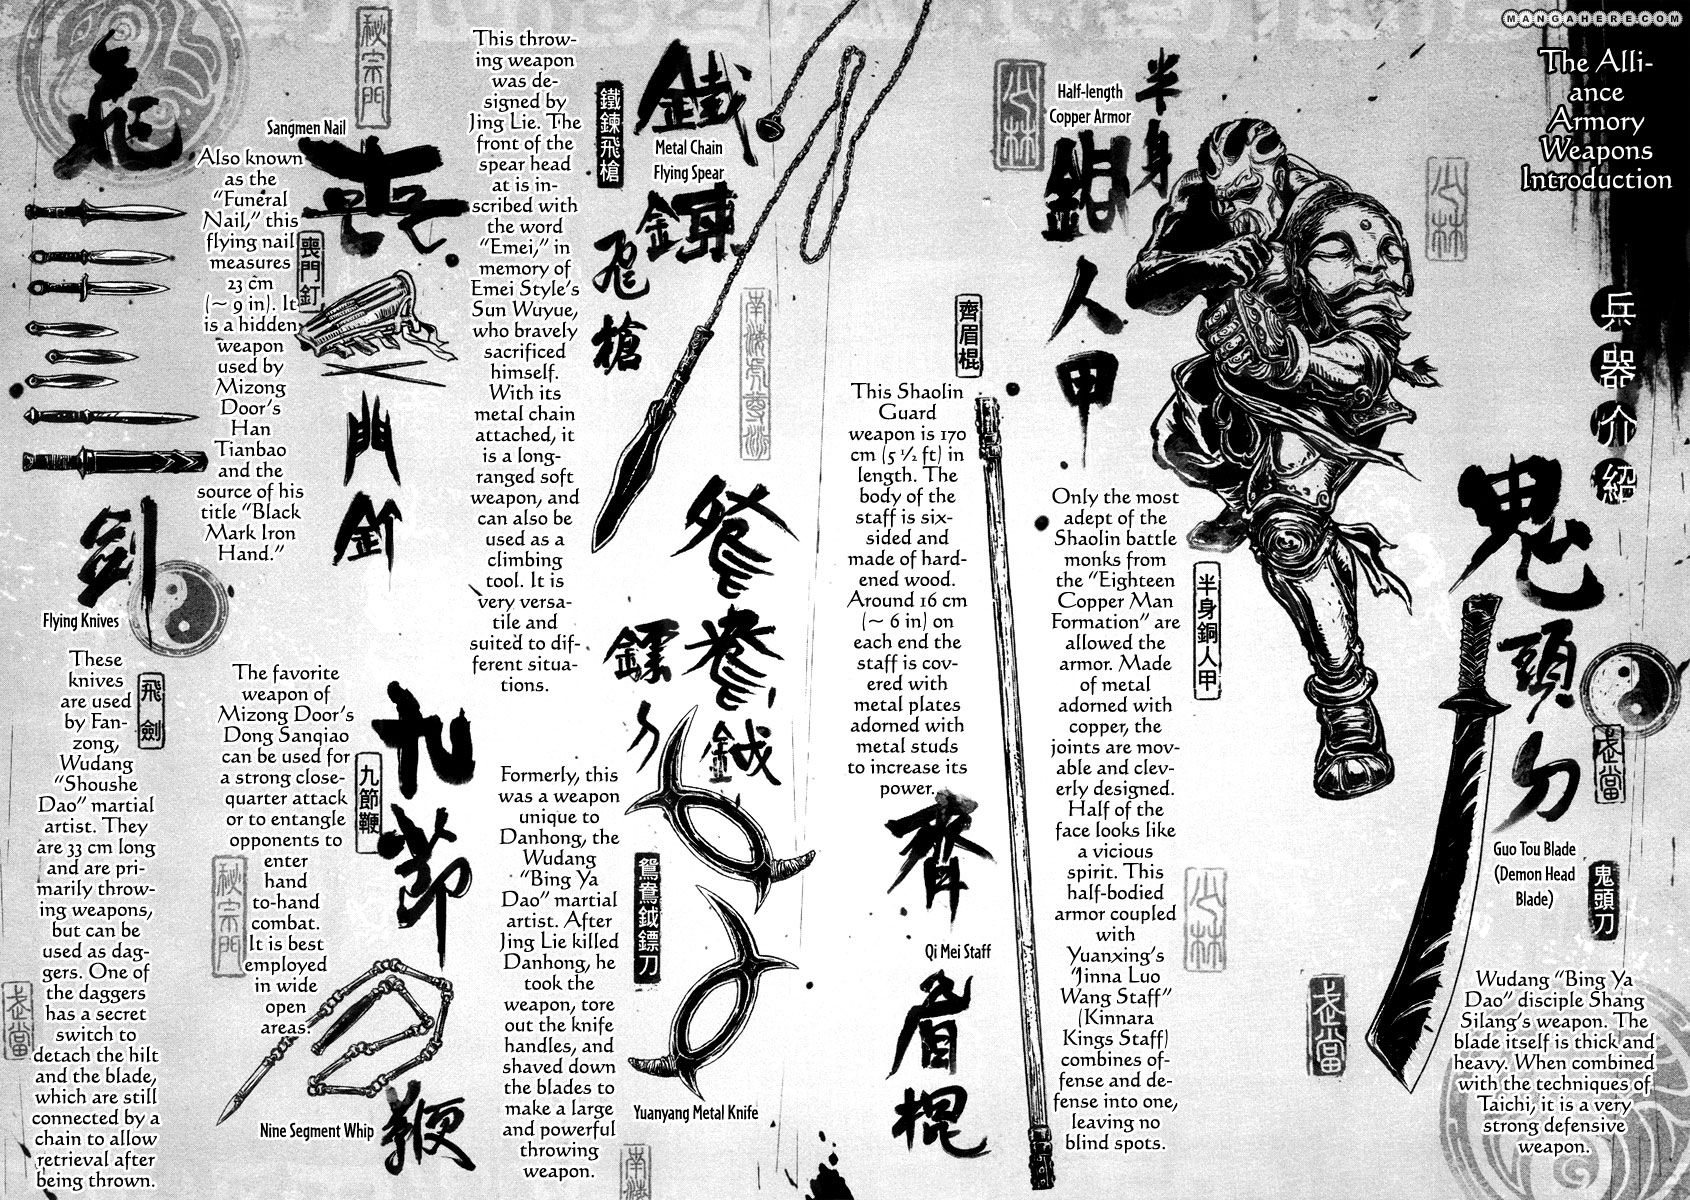 MANGAHERE.COM
The Alli-
ance
Armory
Weapons
Introduction
兵器介紹
鬼頭刀
Guo Tou Blade
(Demon Head
Blade)
鬼頭刀
武當
Wudang “Bing Ya
Dao” disciple Shang
Silang's weapon. The
blade itself is thick and
heavy. When combined
with the techniques of
Taichi, it is a very
strong defensive
weapon.
武當
少林
半身
銅人甲
Half-length
Copper Armor
少林
半身銅人甲
Only the most
adept of the
Shaolin battle
monks from
the “Eighteen
Copper Man
Formation” are
allowed the
armor. Made
of metal
adorned with
copper, the
joints are mov-
able and clev-
erly designed.
Half of the
face looks like
a vicious
spirit. This
half-bodied
armor coupled
with
Yuanxing's
“Jinna Luo
Wang Staff”
(Kinnara
Kings Staff)
combines of-
fense and de-
fense into one,
leaving no
blind spots.
少林
齊眉棍
This Shaolin
Guard
weapon is 170
cm (5 ½ ft) in
length. The
body of the
staff is six-
sided and
made of hard-
ened wood.
Around 16 cm
(~ 6 in) on
each end the
staff is cov-
ered with
metal plates
adorned with
metal studs
to increase its
power.
齊眉棍
Qi Mei Staff
鐵鍊飛槍
Metal Chain
Flying Spear
鐵鍊飛槍
This throw-
ing weapon
was de-
signed by
Jing Lie. The
front of the
spear head
at is in-
scribed with
the word
“Emei,” in
memory of
Emei Style's
Sun Wuyue,
who bravely
sacrificed
himself.
With its
metal chain
attached, it
is a long-
ranged soft
weapon, and
can also be
used as a
climbing
tool. It is
very versa-
tile and
suited to dif-
ferent situa-
tions.
鴛鴦鉞
鏢刀
鴛鴦鉞鏢刀
Formerly, this
was a weapon
unique to
Danhong, the
Wudang
“Bing Ya
Dao” martial
artist. After
Jing Lie killed
Danhong, he
took the
weapon, tore
out the knife
handles, and
shaved down
the blades to
make a large
and powerful
throwing
weapon.
Yuanyang Metal Knife
秘宗門
Sangmen Nail
喪門釘
喪門釘
Also known
as the
“Funeral
Nail,” this
flying nail
measures
23 cm
(~ 9 in). It
is a hidden
weapon
used by
Mizong
Door's
Han
Tianbao
and the
source of his
title “Black
Mark Iron
Hand.”
九節鞭
九節鞭
The favorite
weapon of
Mizong Door's
Dong Sanqiao
can be used for
a strong close-
quarter attack
or to entangle
opponents to
enter
hand
to-hand
combat.
It is best
employed
in wide
open
areas.
秘宗門
Nine Segment Whip
飛劍
Flying Knives
飛劍
These
knives
are used
by Fan-
zong,
Wudang
“Shoushe
Dao” martial
artist. They
are 33 cm long
and are pri-
marily throw-
ing weapons,
but can be
used as dag-
gers. One of
the daggers
has a secret
switch to
detach the hilt
and the blade,
which are still
connected by a
chain to allow
retrieval after
being thrown.
武當